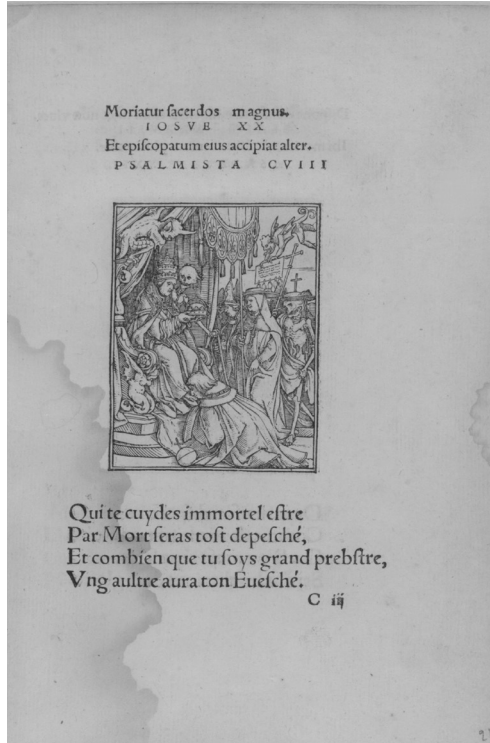 Moriatur sacerdos magnus.
IOSVE XX
Et episcopatum eius accipiat alter.
PSALMISTA CVIII
Qui te cuydes immortel estre
Par Mort seras tost depesché,
Et combien que tu soys grand prebstre,
Vng aultre aura ton Euesché.
C iij